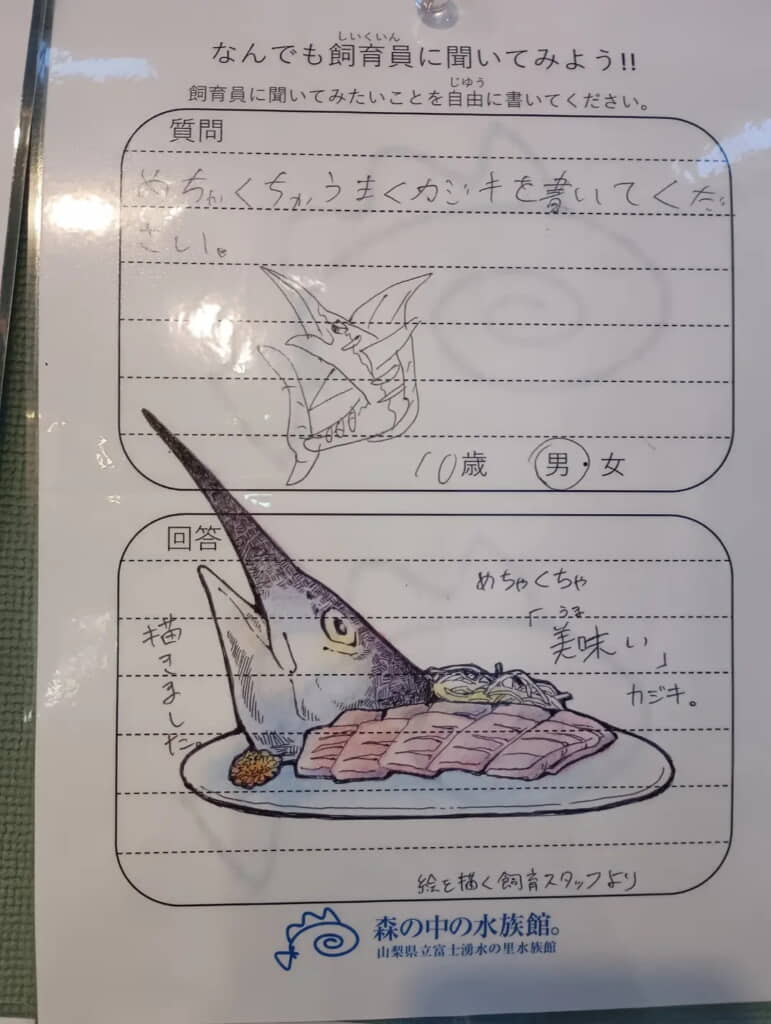 しいくいん
なんでも飼育員に聞いてみよう!!
じゆう
飼育員に聞いてみたいことを自由に書いてください。
質問
めちゃくちゃうまくカジキを書いてくだ
さい。
10歳 男・女
回答
めちゃくちゃ
うま
「美味い」
カジキ。
描きました。
絵を描く飼育スタッフより
森の中の水族館。
山梨県立富士湧水の里水族館